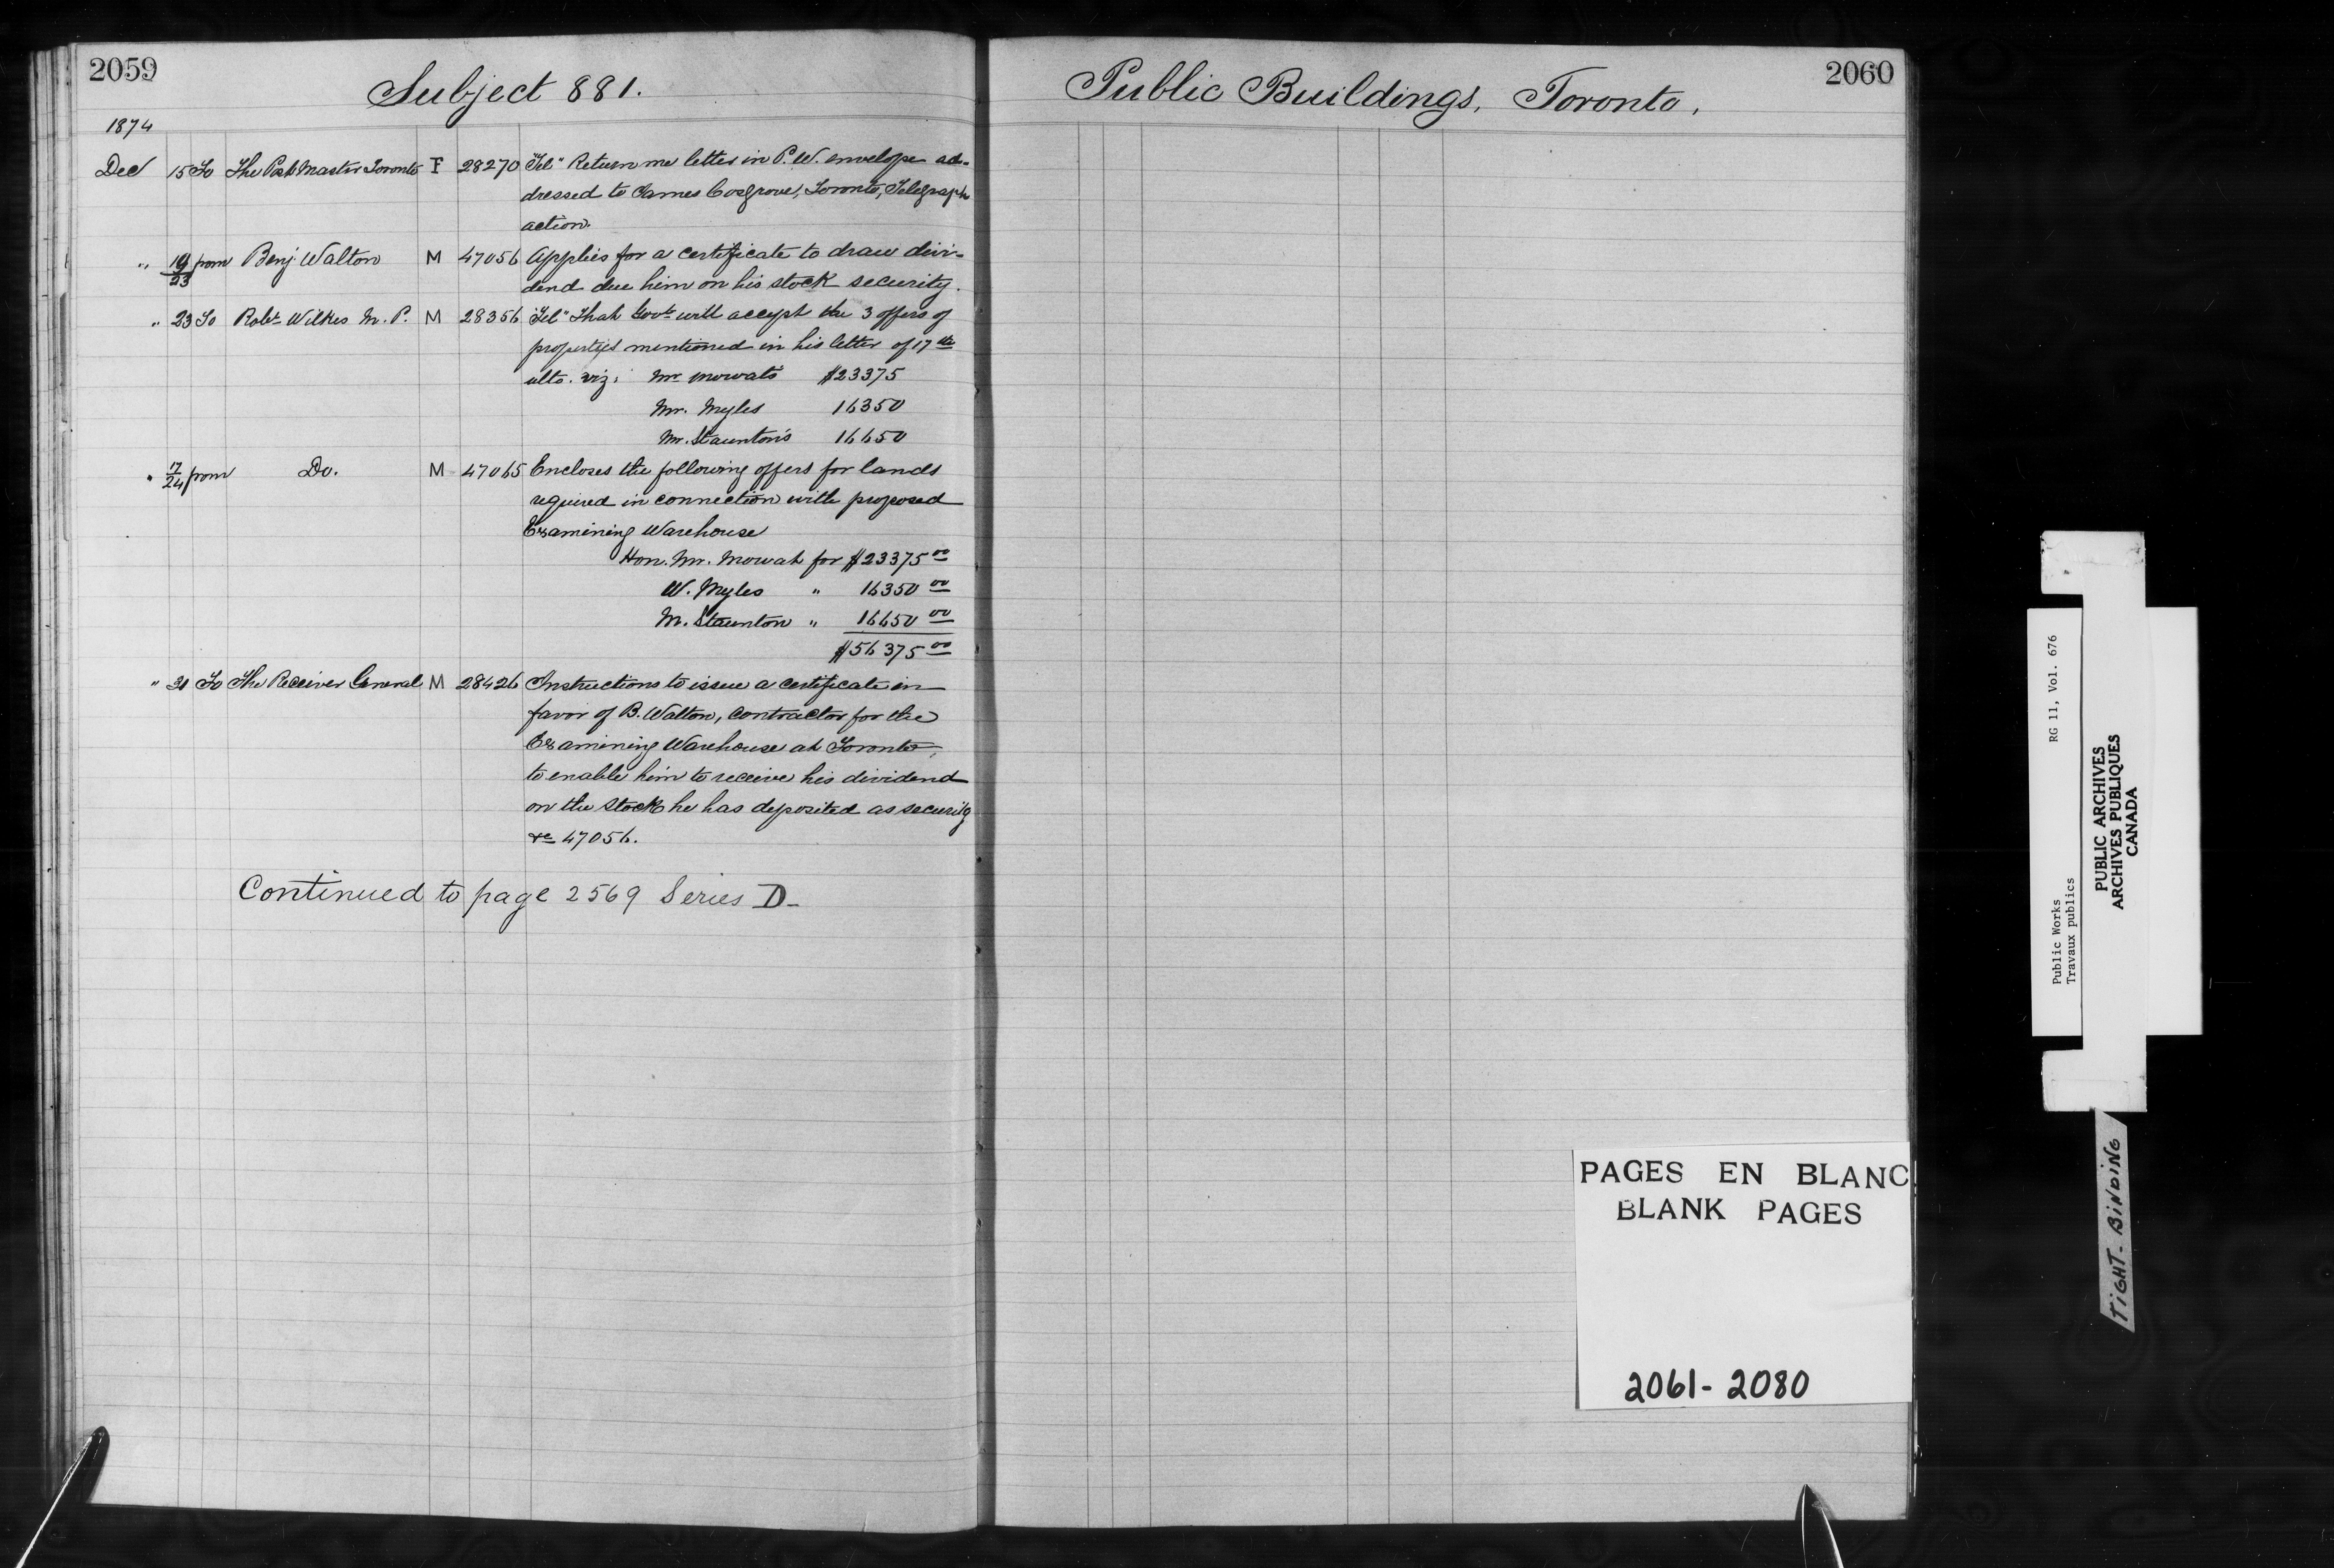 2059
Subject 881.
1874
Dec 15 To The Post Master Toronto F 28270 "Tel" Return me letter in P. W. envelope ad-
dressed to James Cosgrove, Toronto, Telegraph
action.
" 19/23 from Benj. Walton M 47056 Applies for a certificate to draw divi-
dend due him on his stock security.
" 23 To Robt. Wilkes M. P. M 28356 "Tel" That Govt will accept the 3 offers of
properties mentioned in his letter of 17th
ulto. viz: Mr Mowat's $23375
Mr. Myles 16350
Mr. Staunton's 16650
" 17/24 from Do. M 47065 Encloses the following offers for lands
required in connection with proposed
Examining Warehouse
Hon. Mr. Mowat for $23375 00
W. Myles " 16350 00
M. Staunton " 16650 00
$56375 00
" 31 To The Receiver General M 28426 Instructions to issue a certificate in
favor of B. Walton, contractor for the
Examining Warehouse at Toronto,
to enable him to receive his dividend
on the stock he has deposited as security
&c 47056.
Continued to page 2569 Series D-
2060
Public Buildings, Toronto,
PAGES EN BLANC
BLANK PAGES
2061-2080
Public Works RG 11, Vol. 676
Travaux publics
PUBLIC ARCHIVES
ARCHIVES PUBLIQUES
CANADA
TIGHT-BINDING